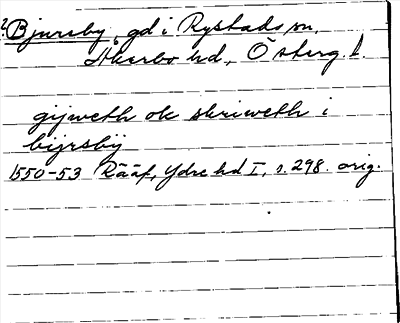 ? Bjursby, gd i Rystads sn,
Åkerbo hd, Österg. l.
gijweth ok skriweth i
bijrsby
1550-53 Rääf, Ydre hd I, s. 298. orig.